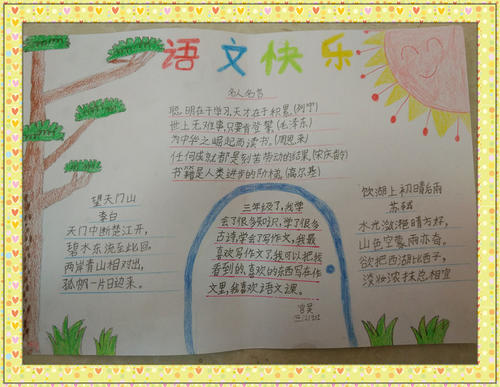 语文快乐
名人名言
聪明在于学习,天才在于积累。(列宁)
世上无难事,只要肯登攀。(毛泽东)
为中华之崛起而读书。(周恩来)
任何成就都是刻苦劳动的结果。(宋庆龄)
书籍是人类进步的阶梯。(高尔基)
望天门山
李白
天门中断楚江开,
碧水东流至此回。
两岸青山相对出,
孤帆一片日边来。
三年级了,我学
会了很多知识,学了很多
古诗,学会了写作文,我最
喜欢写作文了,我可以把我
看到的,喜欢的东西写在作
文里,我喜欢语文课。
饮湖上初晴后雨
苏轼
水光潋滟晴方好,
山色空蒙雨亦奇。
欲把西湖比西子,
淡妆浓抹总相宜